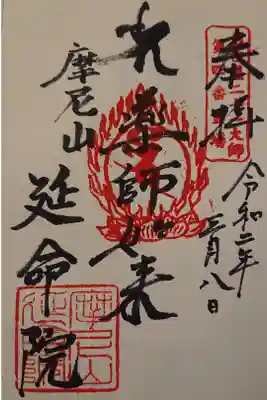 奉拝
令和二年
三月八日
薬師如来
摩尼山
延命院